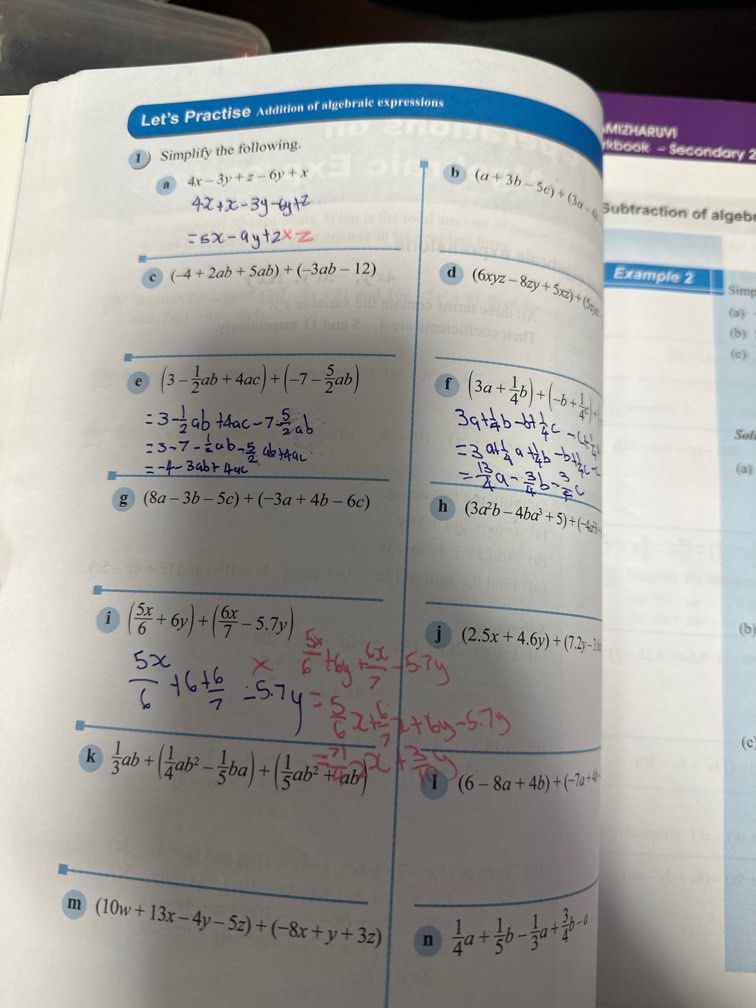 Let's Practise Addition of algebraic expressions
1 Simplify the following.
a 4x − 3y + z − 6y + x
4x+x−3y−6y+z
=5x−9y+2 × z
b (a + 3b − 5c) + (3a −
c (−4 + 2ab + 5ab) + (−3ab − 12)
d (6xyz − 8zy + 5xz) +
e (3 − 1/2 ab + 4ac) + (−7 − 5/2 ab)
=3−1/2 ab +4ac−7−5/2 ab
=3−7−1/2 ab−5/2 ab+4ac
=−4−3ab+4ac
f (3a + 1/4 b) + (−b + 1/4 c)
3a+1/4 b−b+1/4 c
=3a+1/4 a+1/4 b−b+1/4 c−c
=13/4 a−3/4 b−3/4 c
g (8a − 3b − 5c) + (−3a + 4b − 6c)
h (3a²b − 4ba³ + 5) +
i (5x/6 + 6y) + (6x/7 − 5.7y)
5x/6 +6+6/7 −5.7y ×
5x/6 +6y+6x/7 −5.7y
=5/6 x+6/7 x+6y−5.7y
=71/42 x+3/10 y
j (2.5x + 4.6y) + (7.2y −
k 1/3 ab + (1/4 ab² − 1/5 ba) + (1/5 ab² + ab)
l (6 − 8a + 4b) + (−7a +
m (10w + 13x − 4y − 5z) + (−8x + y + 3z)
n 1/4 a + 1/5 b − 1/3 a + 3/4 b − a
MIZHARUVI
rkbook − Secondary 2
Subtraction of algeb
Example 2
Simp
(a)
(b)
(c)
Sol
(a)
(b)
(c)